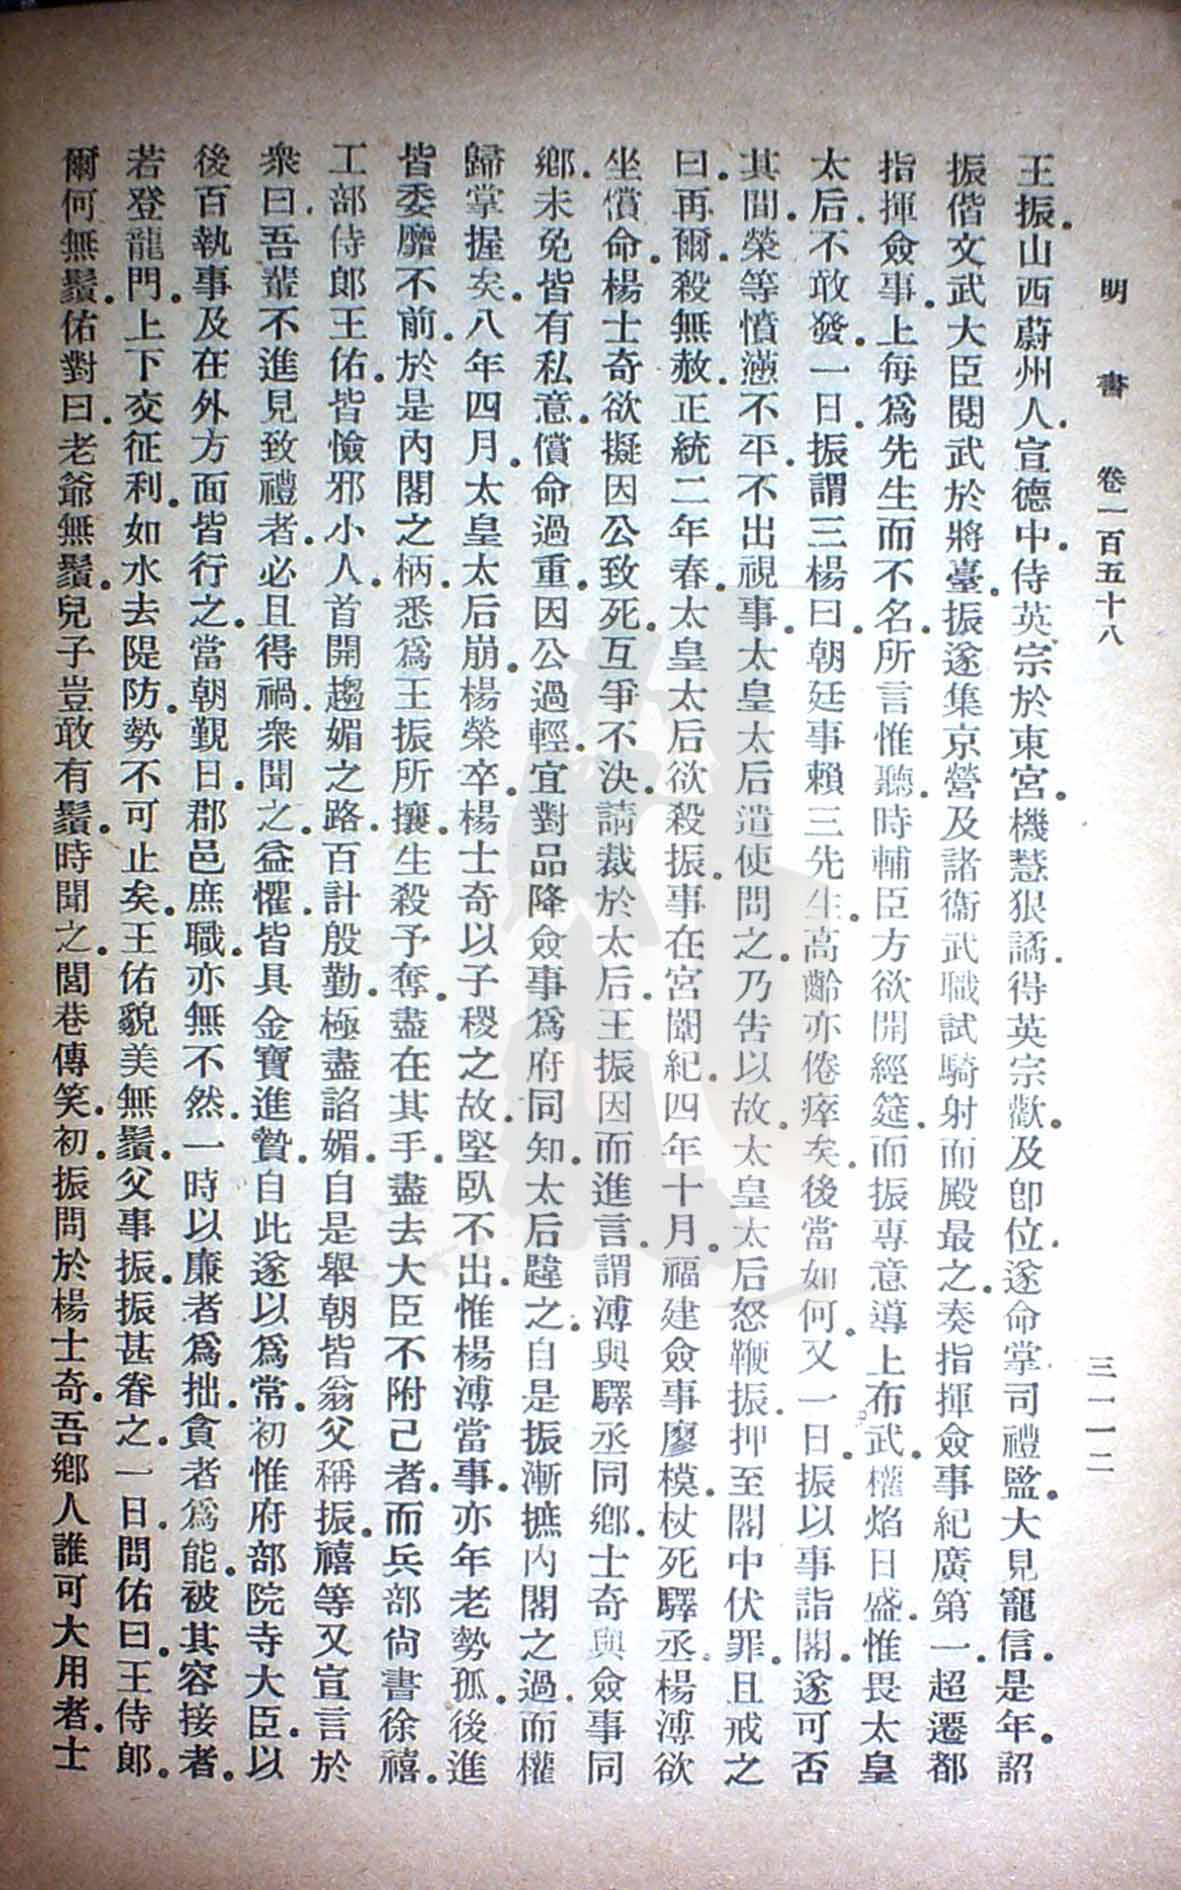 明書 卷一百五十八 三一一二
王振。山西蔚州人。宣德中。侍英宗於東宮。機慧狠譎。得英宗歡。及卽位。遂命掌司禮監。大見寵信。是年。詔
振偕文武大臣閱武於將臺。振遂集京營及諸衞武職試騎射。而殿最之。奏指揮僉事紀廣第一。超遷都
指揮僉事。上每爲先生而不名。所言惟聽。時輔臣方欲開經筵。而振專意導上布武。權焰日盛。惟畏太皇
太后。不敢發。一日。振謂三楊曰。朝廷事賴三先生。高齡亦倦瘁矣。後當如何。又一日。振以事詣閣。遂可否
其間。榮等憤懣不平。不出視事。太皇太后遣使問之。乃告以故。太皇太后怒鞭振。押至閣中伏罪。且戒之
曰。再爾。殺無赦。正統二年春。太皇太后欲殺振。事在宮闈紀。四年十月。福建僉事廖模。杖死驛丞。楊溥欲
坐償命。楊士奇欲擬因公致死。互爭不決。請裁於太后。王振因而進言。謂溥與驛丞同鄉。士奇與僉事同
鄉。未免皆有私意。償命過重。因公過輕。宜對品降僉事爲府同知。太后韙之。自是振漸摭內閣之過。而權
歸掌握矣。八年四月。太皇太后崩。楊榮卒。楊士奇以子稷之故。堅臥不出。惟楊溥當事。亦年老勢孤。後進
皆委靡不前。於是內閣之柄。悉爲王振所攘。生殺予奪。盡在其手。盡去大臣不附己者。而兵部尙書徐禧。
工部侍郎王佑。皆憸邪小人。首開趨媚之路。百計殷勤。極盡諂媚。自是舉朝皆翁父稱振。禧等又宣言於
衆曰。吾輩不進見致禮者。必且得禍。衆聞之。益懼。皆具金寶進贄。自此遂以爲常。初惟府部院寺大臣。以
後百執事及在外方面皆行之。當朝覲日。郡邑庶職。亦無不然。一時以廉者爲拙。貪者爲能。被其容接者。
若登龍門。上下交征利。如水去隄防。勢不可止矣。王佑貌美無鬚。父事振。振甚眷之。一日。問佑曰。王侍郎。
爾何無鬚。佑對曰。老爺無鬚。兒子豈敢有鬚。時聞之。閭巷傳笑。初。振問於楊士奇。吾鄉人誰可大用者。士